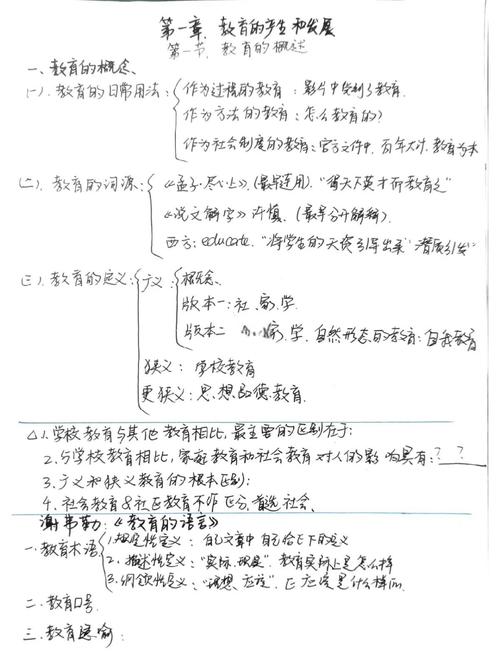 第一章. 教育的产生和发展
第一节. 教育的概述
一、教育的概念、
(一). 教育的日常用法: 作为过程的教育: 影片中受到了教育.
作为方法的教育: 怎么教育的?
作为社会制度的教育: 官方文件中, 百年大计, 教育为本
(二). 教育的词源: 《孟子·尽心上》. (最早连用). "得天下英才而教育之"
《说文解字》许慎. (最早分开解释).
西方: educate. "将学生的天资引导出来"
(三). 教育的定义: 广义: 概念、
版本一: 社、家、学.
版本二 家、学. 自然形态的教育: 自我教育
狭义: 学校教育
更狭义: 思想品德教育.
△1.学校教育与其他教育相比, 最主要的区别在于:
2.与学校教育相比, 家庭教育和社会教育对人的影响具有: ? ?
3.广义和狭义教育的根本区别:
4.社会教育&社区教育不作区分, 首选社会、
谢弗勒: 《教育的语言》
一.教育术语 1.规定性定义: 自己文章中自己给E下的定义
2.描述性定义: "实际. 现是". 教育实际上是怎么样
3.纲领性定义: "理想. 应该". E应该是什么样
二.教育口号.
三.教育隐喻: